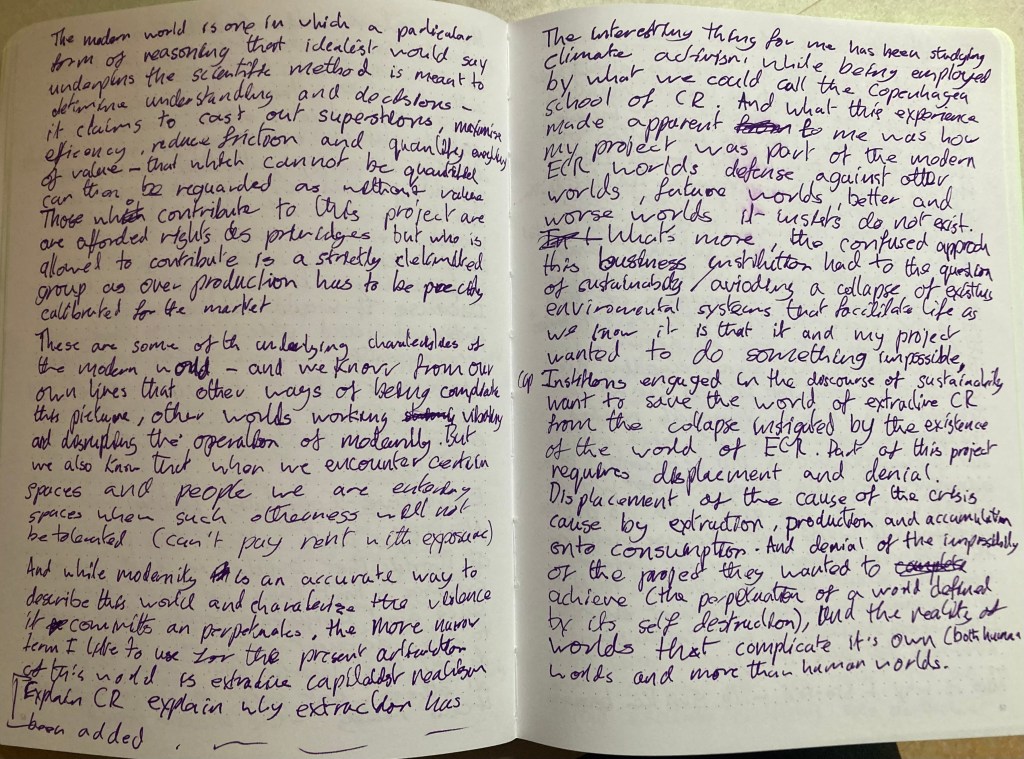 The modern world is one in which a particular
form of reasoning that idealist would say
underpins the scientific method is meant to
determine understanding and decisions -
it claims to cast out superstions, maximise
efficency, reduce friction and quantify everything
of value - that which cannot be quantified
can then be reguarded as without value
Those which contribute to this project are
are afforded rights as priveridges but who is
allowed to contribute is a strictly delimited
group as over production has to be precisely
calibrated for the market
These are some of the underlying characteristics of
the modern world - and we know from our
own lives that other ways of being complicate
this picture, other worlds working vibrating
and disrupting the operation of modernity. But
we also know that when we encounter certain
spaces and people we are entering
spaces when such otherness will not
be tolerated (can't pay rent with exposure)
And while modernity is an accurate way to
describe this world and charaterize the violence
it committs an perpetuates, the more narrow
term I like to use for the present articulation
of this world is extractive capitalist realism
Explain CR explain why extraction has
been added
The interesting thing for me has been studying
climate activism, while being employed
by what we could call the Copenhagen
school of CR. And what this experience
made apparent to me was how
my project was part of the modern
ECR worlds defense against other
worlds, future worlds, better and
worse worlds it insists do not exist.
What's more, the confused approch
this business institution had to the question
of sustainability / avioding a collapse of existing
enviromental systems that facilitate life as
we know it is that it and my project
wanted to do something impossible,
Instituions engaged in the discourse of sustainability
want to save the world of extractive CR
from the collapse instigated by the existence
of the world of ECR. Part of this project
requires displacment and denial.
Displacement of the cause of the crisis
cause by extraction, production and accumulation
onto consumption. And denial of the impossibility
of the project they wanted to
achieve (the perpetuation of a world defined
by its self destruction), and the reality of
worlds that complicate it's own (both human
worlds and more than human worlds.